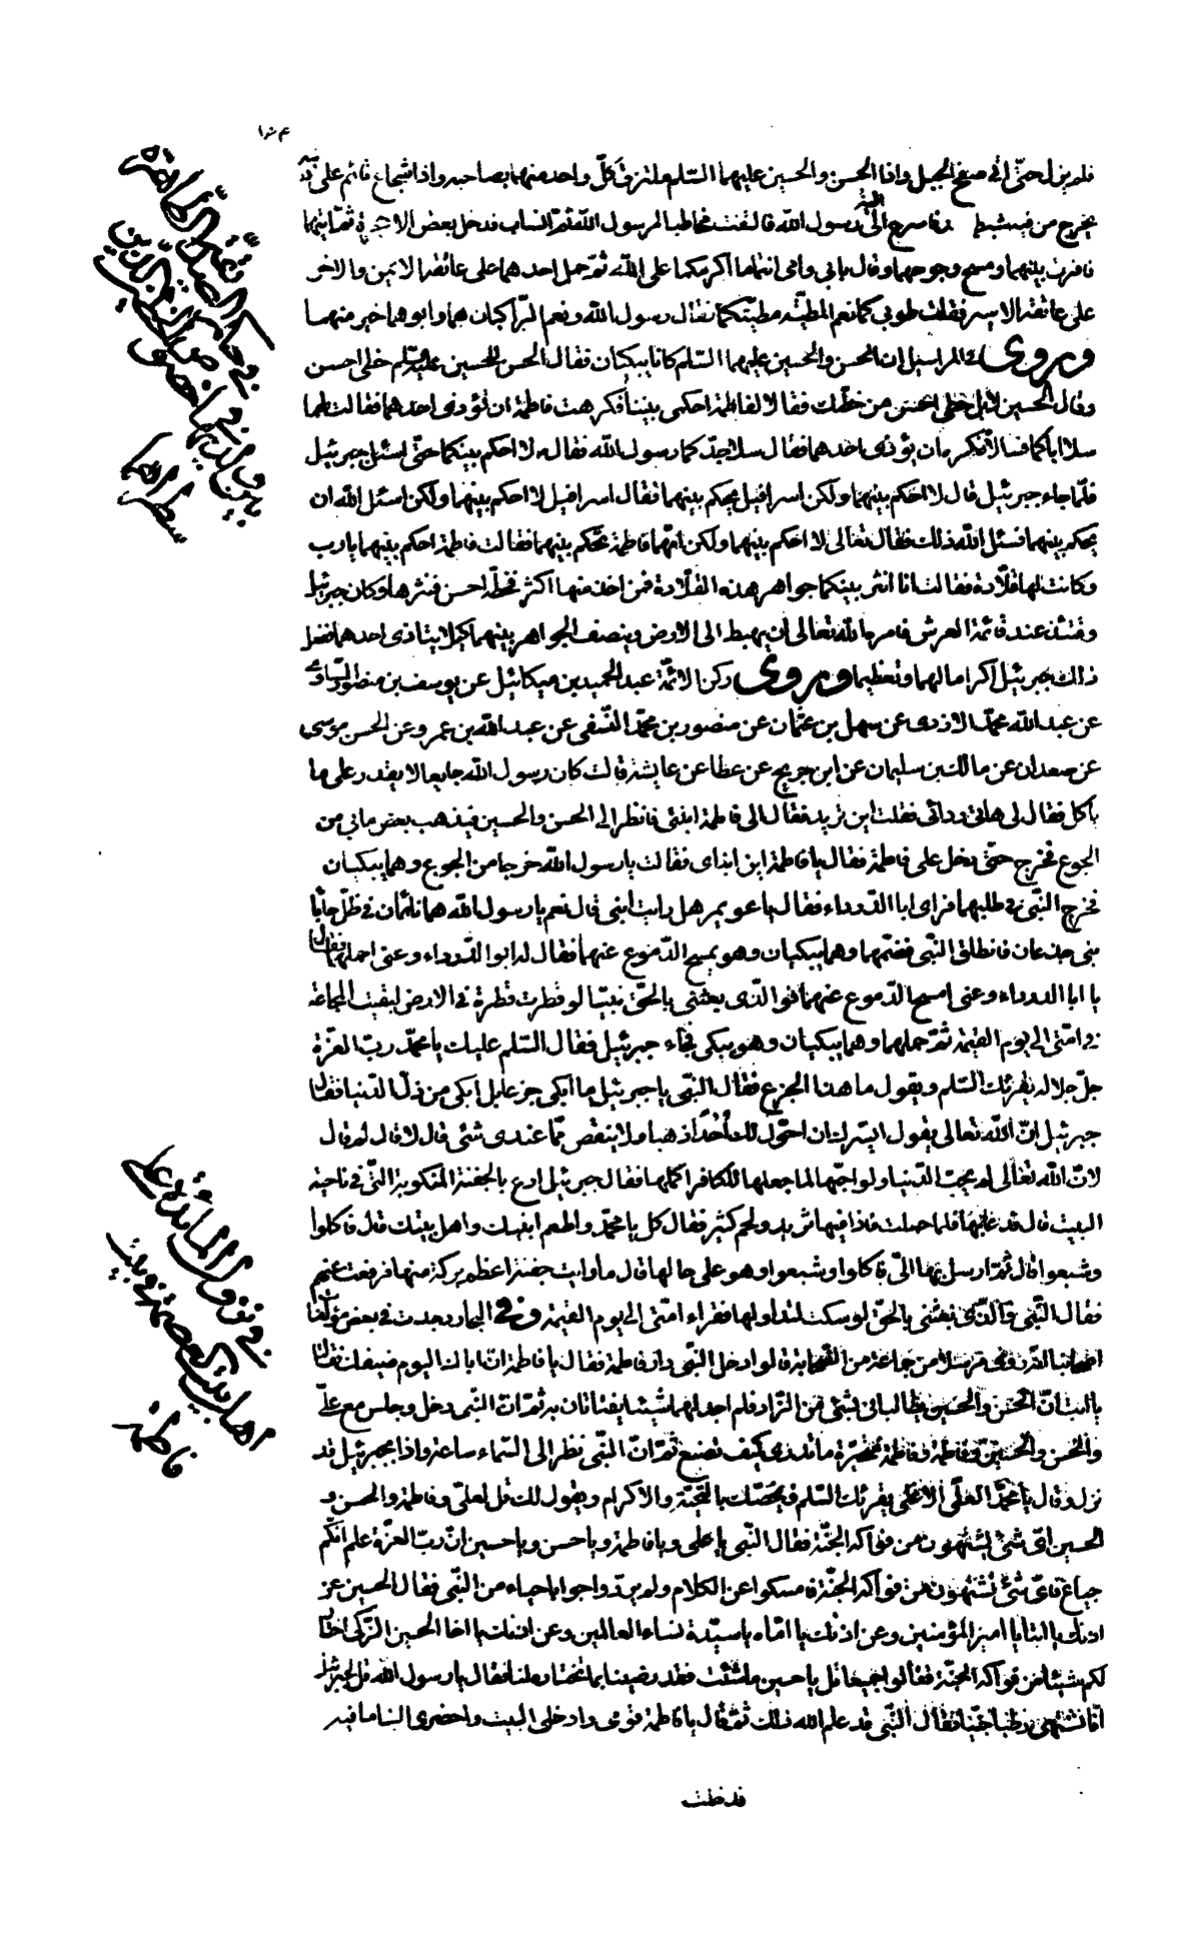 فلم يزل حتّى اتى صفح الجبل واذا الحسن والحسين عليهما السّلم ملتزق كلّ واحد منهما بصاحبه واذا شجاع قائم على ذنبه
يخرج من فيه شبه فاسرع اليه رسول الله فالتفت مخاطبا لرسول الله ثمّ انساب فدخل بعض الاجحرة ثمّ اتيهما
فافرق بينهما ومسح وجوههما وقال بابى وامى انتما ما اكرمكما على الله ثمّ حمل احدهما على عاتقه الايمن والاخر
على عاتقه الايسر فقلت طوبى كما نعم المطيّة مطيّتكما فقال رسول الله ونعم الرّاكبان هما وابوهما خير منهما
وروى فى المراسيل ان الحسن والحسين عليهما السّلم كانا يكتبان فقال الحسن للحسين خطى احسن
وقال الحسين لا بل خطى احسن من خطّك فقالا لفاطمة احكمى بيننا فكرهت فاطمة ان تؤذى احدهما فقالت لهما
سلا اباكما فسالاه فكره ان يؤذى احدهما فقال سلا جدّكما رسول الله فقال لا احكم بينكما حتّى اسئل جبرئيل
فلمّا جاء جبرئيل قال لا احكم بينهما ولكن اسرافيل يحكم بينهما فقال اسرافيل لا احكم بينهما ولكن اسئل الله ان
يحكم بينهما فسئل الله ذلك فقال تعالى لا احكم بينهما ولكن امّهما فاطمة تحكم بينهما فقالت فاطمة احكم بينهما يا رب
وكانت لها قلادة فقالت انا انثر بينكما جواهر هذه القلادة فمن اخذ منها اكثر فخطّه احسن فنثرها وكان جبرئيل
وقتئذ عند قائمة العرش فامره الله تعالى ان يهبط الى الارض وينصف الجواهر بينهما كيلا يتاذى احدهما ففعل
ذلك جبرئيل اكراما لهما وتعظيما وروى ركن الائمّة عبد الحميد بن ميكائيل عن يوسف بن منصور الساوى
عن عبد الله محمّد الازدى عن سهل بن عثمان عن منصور بن محمّد النسفى عن عبد الله بن عمرو عن الحسن موسى
عن صعدان عن مالك بن سليمان عن ابن جريح عن عطا عن عايشة قالت كان رسول الله جايعا لا يقدر على ما
ياكل فقال لى هاتى ردائى فقلت اين تريد فقال الى فاطمة ابنتى فانظر الى الحسن والحسين فيذهب بعض ما بى من
الجوع فخرج حتّى دخل على فاطمة فقال يا فاطمة اين ابناى فقالت يا رسول الله خرجا من الجوع وهما يبكيان
فخرج النبّى فى طلبهما فراى ابا الدّرداء فقال يا عويمر هل رايت ابنى قال نعم يا رسول الله هما نائمان فى ظلّ حايط
بنى جدعان فانطلق النبّى فضمّهما وهما يبكيان وهو يمسح الدّموع عنهما فقال له ابو الدّرداء دعنى احملهما فقال
يا ابا الدرداء دعنى امسح الدّموع عنهما فوالّذى بعثنى بالحقّ نبيّا لو قطرت قطرة فى الارض لبقيت المجاعة
فى امّتى الى يوم القيمة ثمّ حملهما وهما يبكيان وهو يبكى فجاء جبرئيل فقال السّلم عليك يا محمّد ربّ العزّة
جلّ جلاله يقرئك السّلم ويقول ما هذا الجزع فقال النبّى يا جبرئيل ما ابكى جزعا بل ابكى من ذلّ الدّنيا فقال
جبرئيل انّ الله تعالى يقول ايسرك ان احوّل لك أُحُدًا ذهبا ولا ينقص ممّا عندى شئى قال لا قال لم قال
لانّ الله تعالى لم يحبّ الدّنيا ولو احبّها لما جعلها للكافر اكلها فقال جبرئيل ادع بالجفنة المنكوبة التّى فى ناحية
البيت قال فدعا بها فلما حملت فاذا فيها ثريد ولحم كثير فقال كل يا محمّد واطعم ابنيك واهل بيتك قال فاكلوا
وشبعوا قال ثمّ ارسل بها الىّ فاكلوا وشبعوا وهو على حالها قال ما رايت جفنة اعظم بركة منها فرفعت عنهم
فقال النبّى والّذى بعثنى بالحقّ لو سكت لتداولها فقراء امّتى الى يوم القيمة وفى البحار وجدت فى بعض مؤلّفات
اصحابنا انّه روى مرسلا من جماعة من الصّحابة قالوا دخل النبّى دار فاطمة فقال يا فاطمة انّ اباك اليوم ضيفك فقالت
يا ابت انّ الحسن والحسين يطالبانى بشئى من الزّاد فلم اجد لهما شيئا يقتاتان به ثمّ انّ النبّى دخل وجلس مع علىّ
والحسن والحسين وفاطمة وفاطمة متحيّرة ما تدرى كيف تصنع ثمّ انّ النبّى نظر الى السّماء ساعة واذا بجبرئيل قد
نزل وقال يا محمّد العلّى الاعلى يقرئك السّلم ويخصّك بالتّحيّة والاكرام ويقول لك قل لعلىّ وفاطمة والحسن و
الحسين اىّ شئ يشتهون من فواكه الجنّة فقال النّبى يا على ويا فاطمة ويا حسن ويا حسين انّ ربّ العزّة علم انّكم
جياع فاىّ شئ تشتهون من فواكه الجنّة فامسكوا عن الكلام ولم يردّوا جوابا حياء من النّبى فقال الحسين عن
اذنك يا ابتا يا امير المؤمنين وعن اذنك يا امّاه يا سيّدة نساء العالمين وعن اذنك يا اخا الحسن الزّكى اختار
لكم شيئا من فواكه الجنّة فقالوا جميعا قل يا حسين ما شئت فقد رضينا بما تختاره لنا فقال يا رسول الله قل لجبرئيل
انّا نشتهى رطبا جنيّا فقال النّبى قد علم الله ذلك ثمّ قال يا فاطمة قومى وادخلى البيت واحضرى الينا ما فيه
فدخلت
فى نزول المائدة على
اهل بيت العصمة وبيت
فاطمة